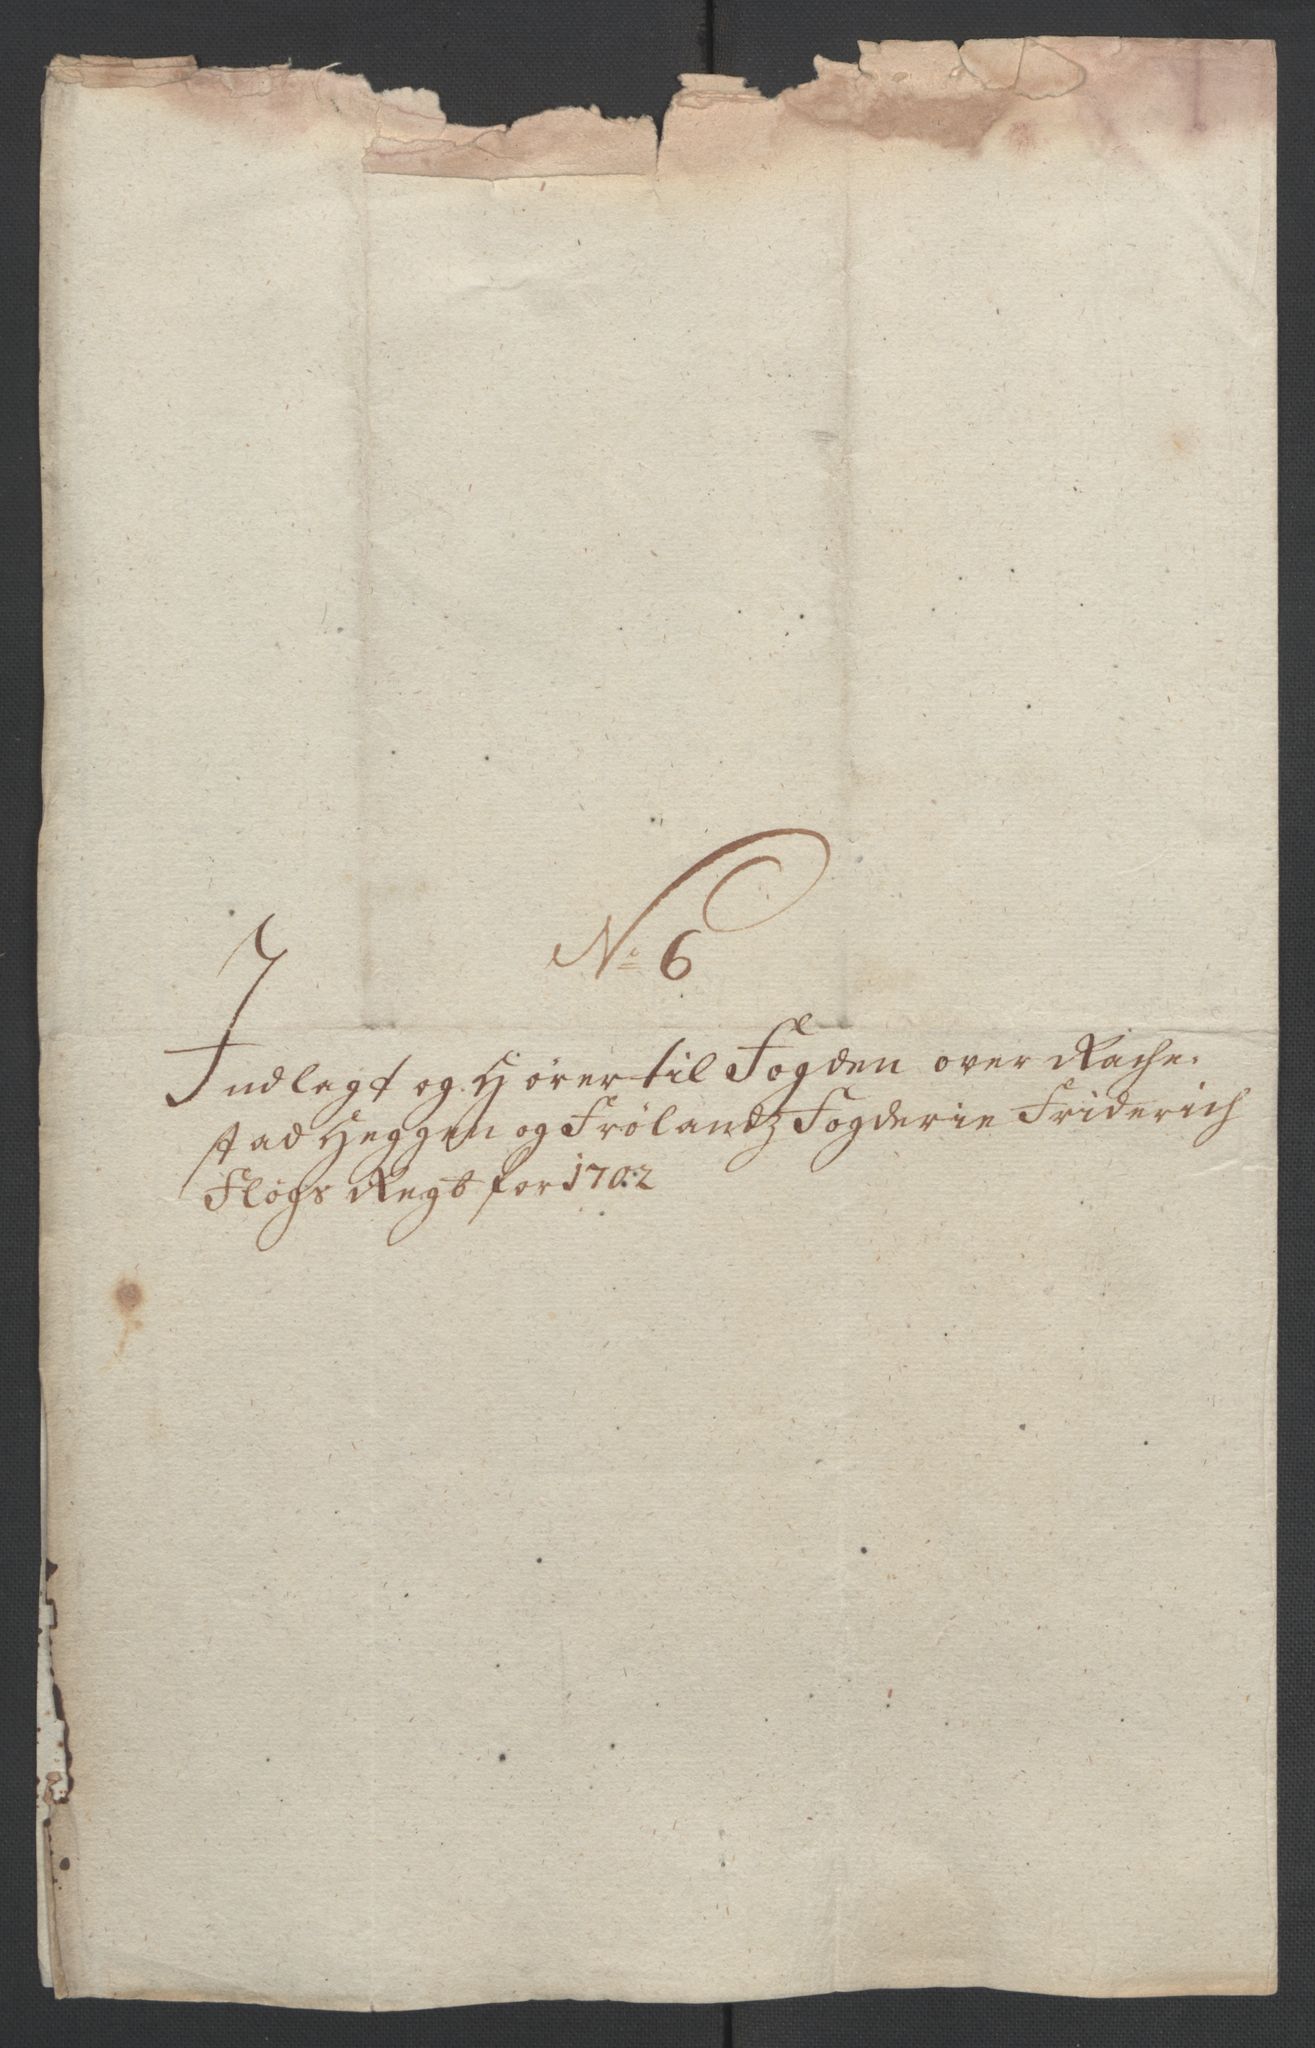 No 6
Indlagt og Hörer til Fogden over Rache-
stad Heggen og Frölandz Fogderie Friderich
Fløgs Regb for 1702